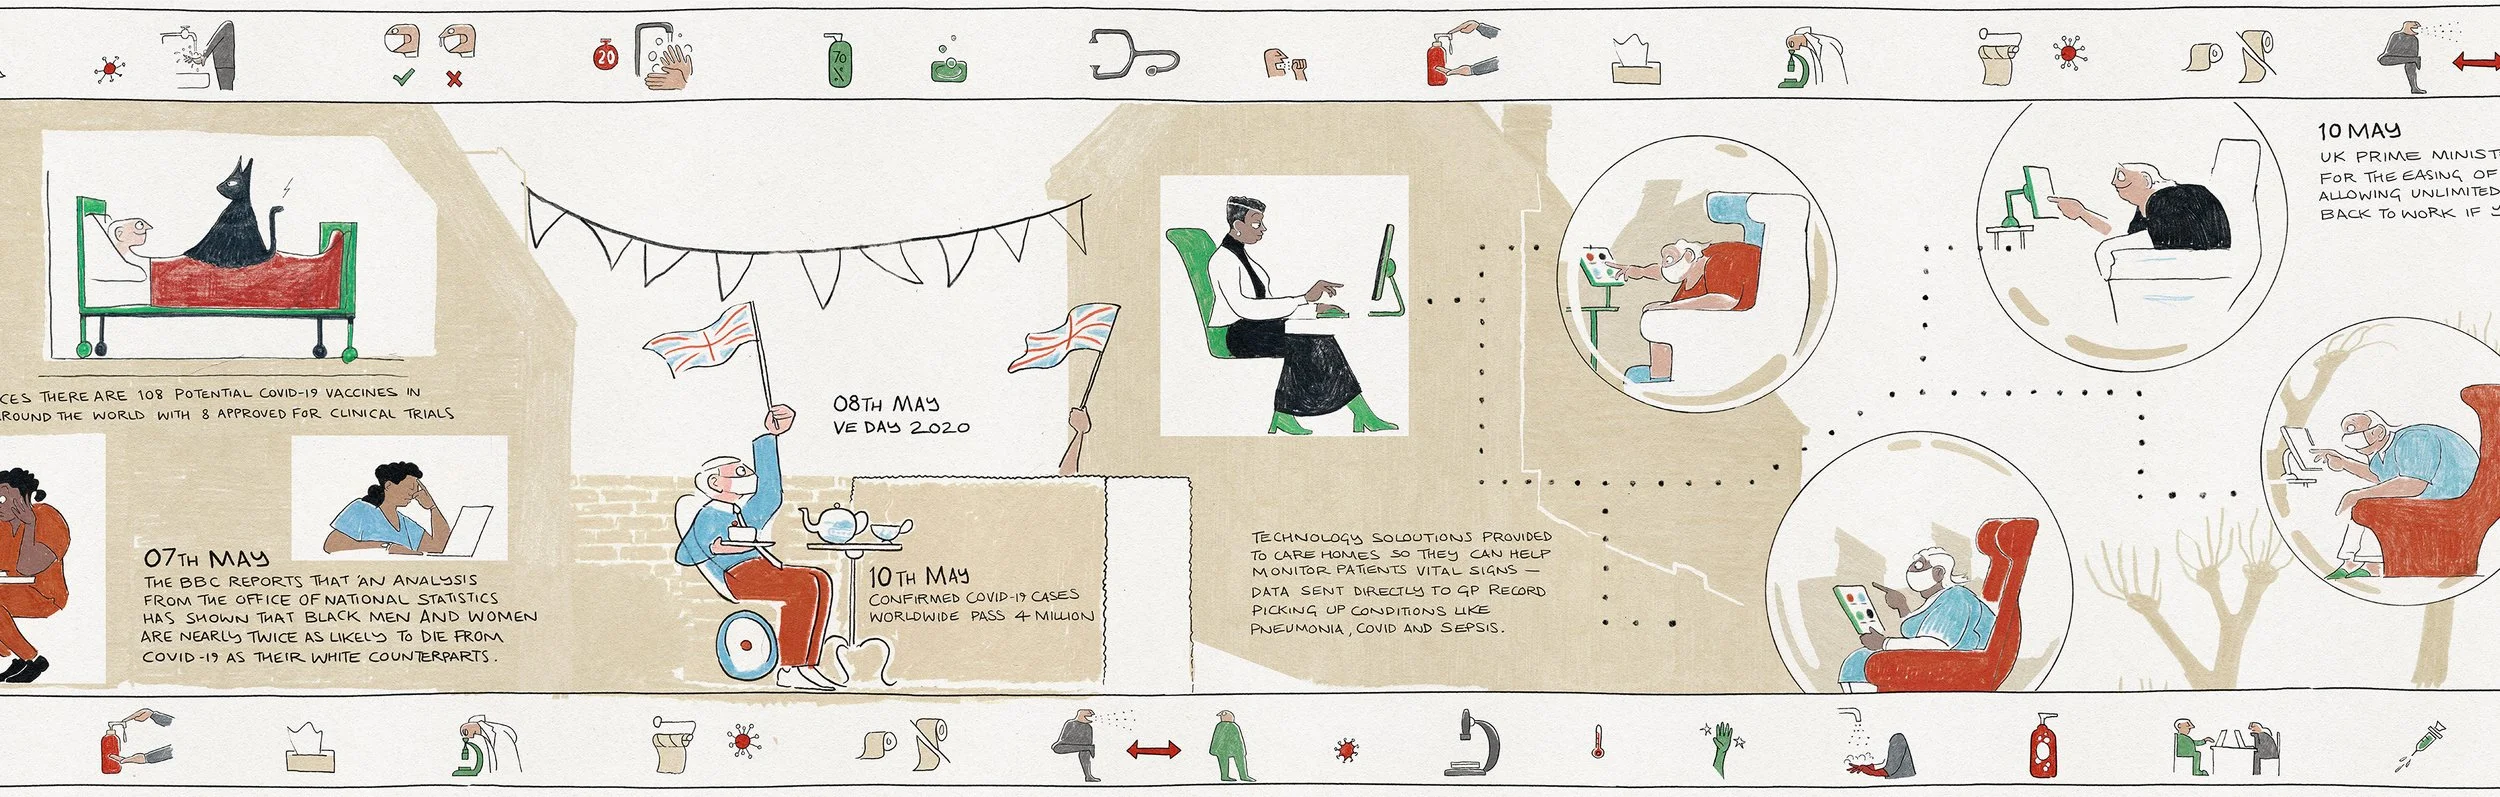 20
70
%
CES THERE ARE 108 POTENTIAL COVID-19 VACCINES IN
ROUND THE WORLD WITH 8 APPROVED FOR CLINICAL TRIALS
07TH MAY
THE BBC REPORTS THAT 'AN ANALYSIS
FROM THE OFFICE OF NATIONAL STATISTICS
HAS SHOWN THAT BLACK MEN AND WOMEN
ARE NEARLY TWICE AS LIKELY TO DIE FROM
COVID-19 AS THEIR WHITE COUNTERPARTS.
08TH MAY
VE DAY 2020
10TH MAY
CONFIRMED COVID-19 CASES
WORLDWIDE PASS 4 MILLION
TECHNOLOGY SOLOUTIONS PROVIDED
TO CARE HOMES SO THEY CAN HELP
MONITOR PATIENTS VITAL SIGNS —
DATA SENT DIRECTLY TO GP RECORD
PICKING UP CONDITIONS LIKE
PNEUMONIA, COVID AND SEPSIS.
10 MAY
UK PRIME MINIST
FOR THE EASING OF
ALLOWING UNLIMITED
BACK TO WORK IF Y